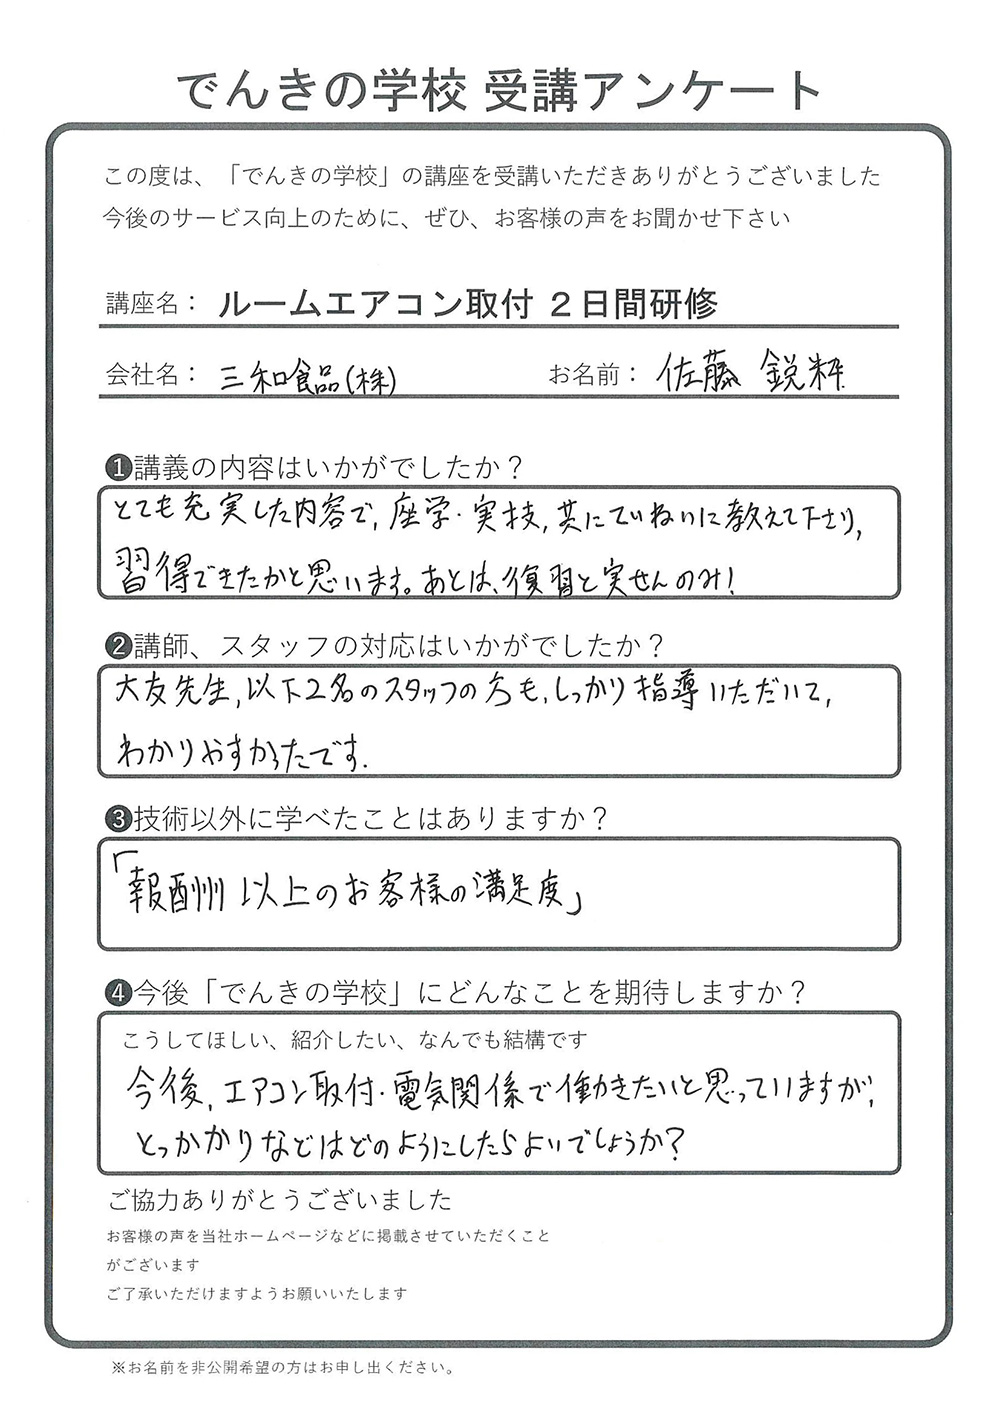 でんきの学校 受講アンケート
この度は、「でんきの学校」の講座を受講いただきありがとうございました
今後のサービス向上のために、ぜひ、お客様の声をお聞かせ下さい
講座名： ルームエアコン取付 2日間研修
会社名： 三和食品(株) お名前： 佐藤 鋭粋
❶講義の内容はいかがでしたか？
とても充実した内容で,座学・実技,共にていねいに教えて下さり,
習得できたかと思います。あとは、復習と実せんのみ!
❷講師、スタッフの対応はいかがでしたか？
大友先生,以下2名のスタッフの方も,しっかり指導いただいて,
わかりやすかったです.
❸技術以外に学べたことはありますか？
「報酬州以上のお客様の満足度」
❹今後「でんきの学校」にどんなことを期待しますか？
こうしてほしい、紹介したい、なんでも結構です
今後,エアコン取付・電気関係で働きたいと思っていますが,
とっかかりなどはどのようにしたらよいでしょうか?
ご協力ありがとうございました
お客様の声を当社ホームページなどに掲載させていただくこと
がございます
ご了承いただけますようお願いいたします
※お名前を非公開希望の方はお申し出ください。